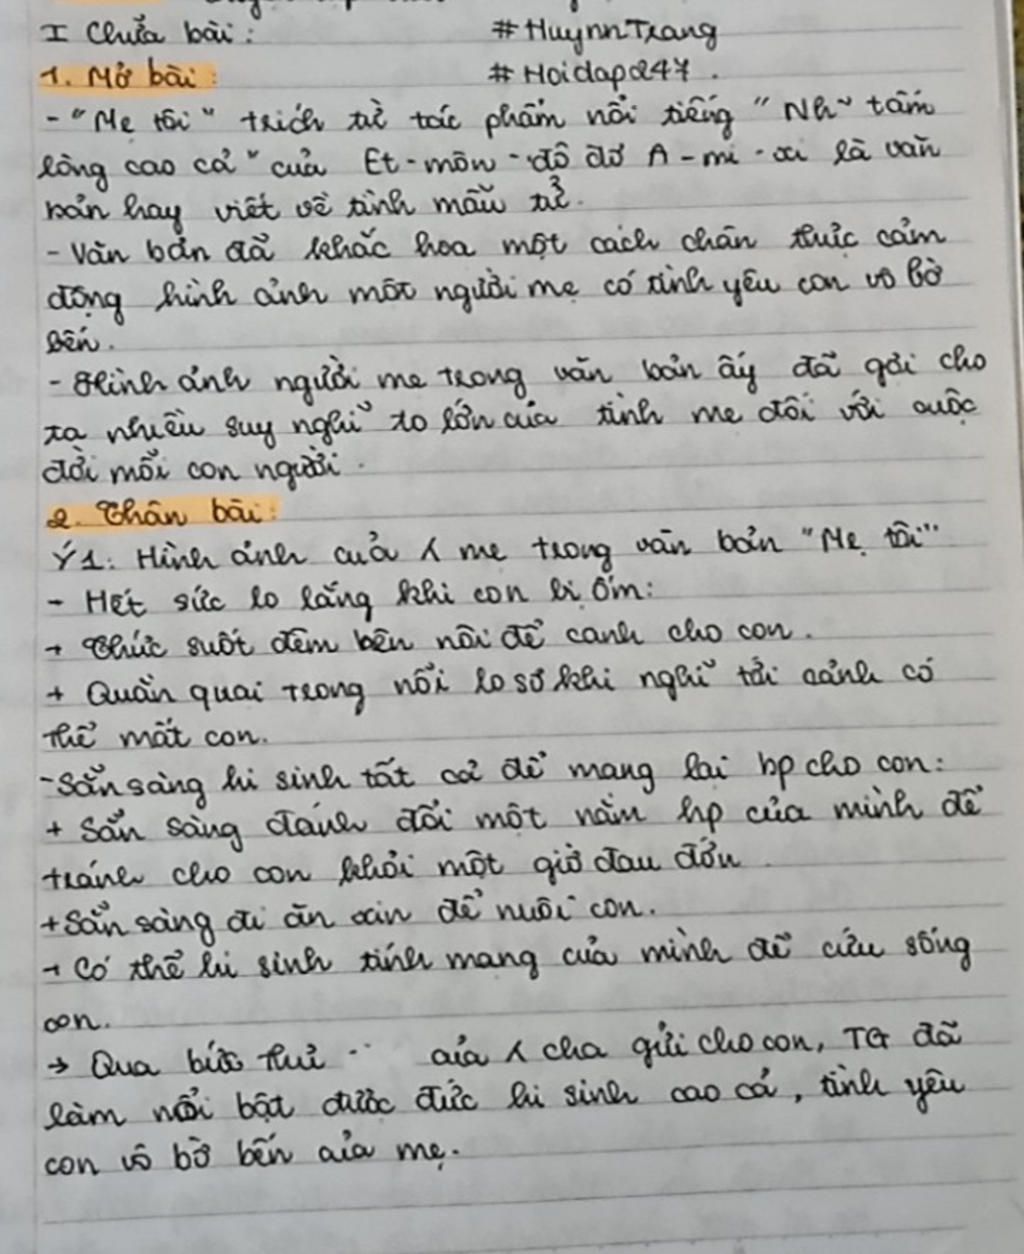 I Chữa bài:
#HuynnTrang
1. Mở bài:
#Hoidap247.
- "Mẹ tôi" trích từ tác phẩm nổi tiếng "Nh~ tấm
lòng cao cả" của Et-môn-đô đơ A-mi-xi là văn
bản hay viết về tình mẫu tử.
- Văn bản đã khắc họa một cách chân thực cảm
động hình ảnh một người mẹ có tình yêu con vô bờ
bến.
- Hình ảnh người mẹ trong văn bản ấy đã gợi cho
ta nhiều suy nghĩ to lớn của tình mẹ đối với cuộc
đời mỗi con người.
2. Thân bài:
Ý1: Hình ảnh của mẹ trong văn bản "Mẹ tôi"
- Hết sức lo lắng khi con bị ốm:
+ Thức suốt đêm bên nôi để canh cho con.
+ Quằn quại trong nỗi lo sợ khi nghĩ tới cảnh có
thể mất con.
- Sẵn sàng hi sinh tất cả để mang lại hp cho con:
+ Sẵn sàng đánh đổi một năm hp của mình để
tránh cho con khỏi một giờ đau đớn
+ Sẵn sàng đi ăn xin để nuôi con.
+ Có thể hi sinh tính mạng của mình để cứu sống
con.
→ Qua bức thư .. của cha gửi cho con, TG đã
làm nổi bật được đức hi sinh cao cả, tình yêu
con vô bờ bến của mẹ.